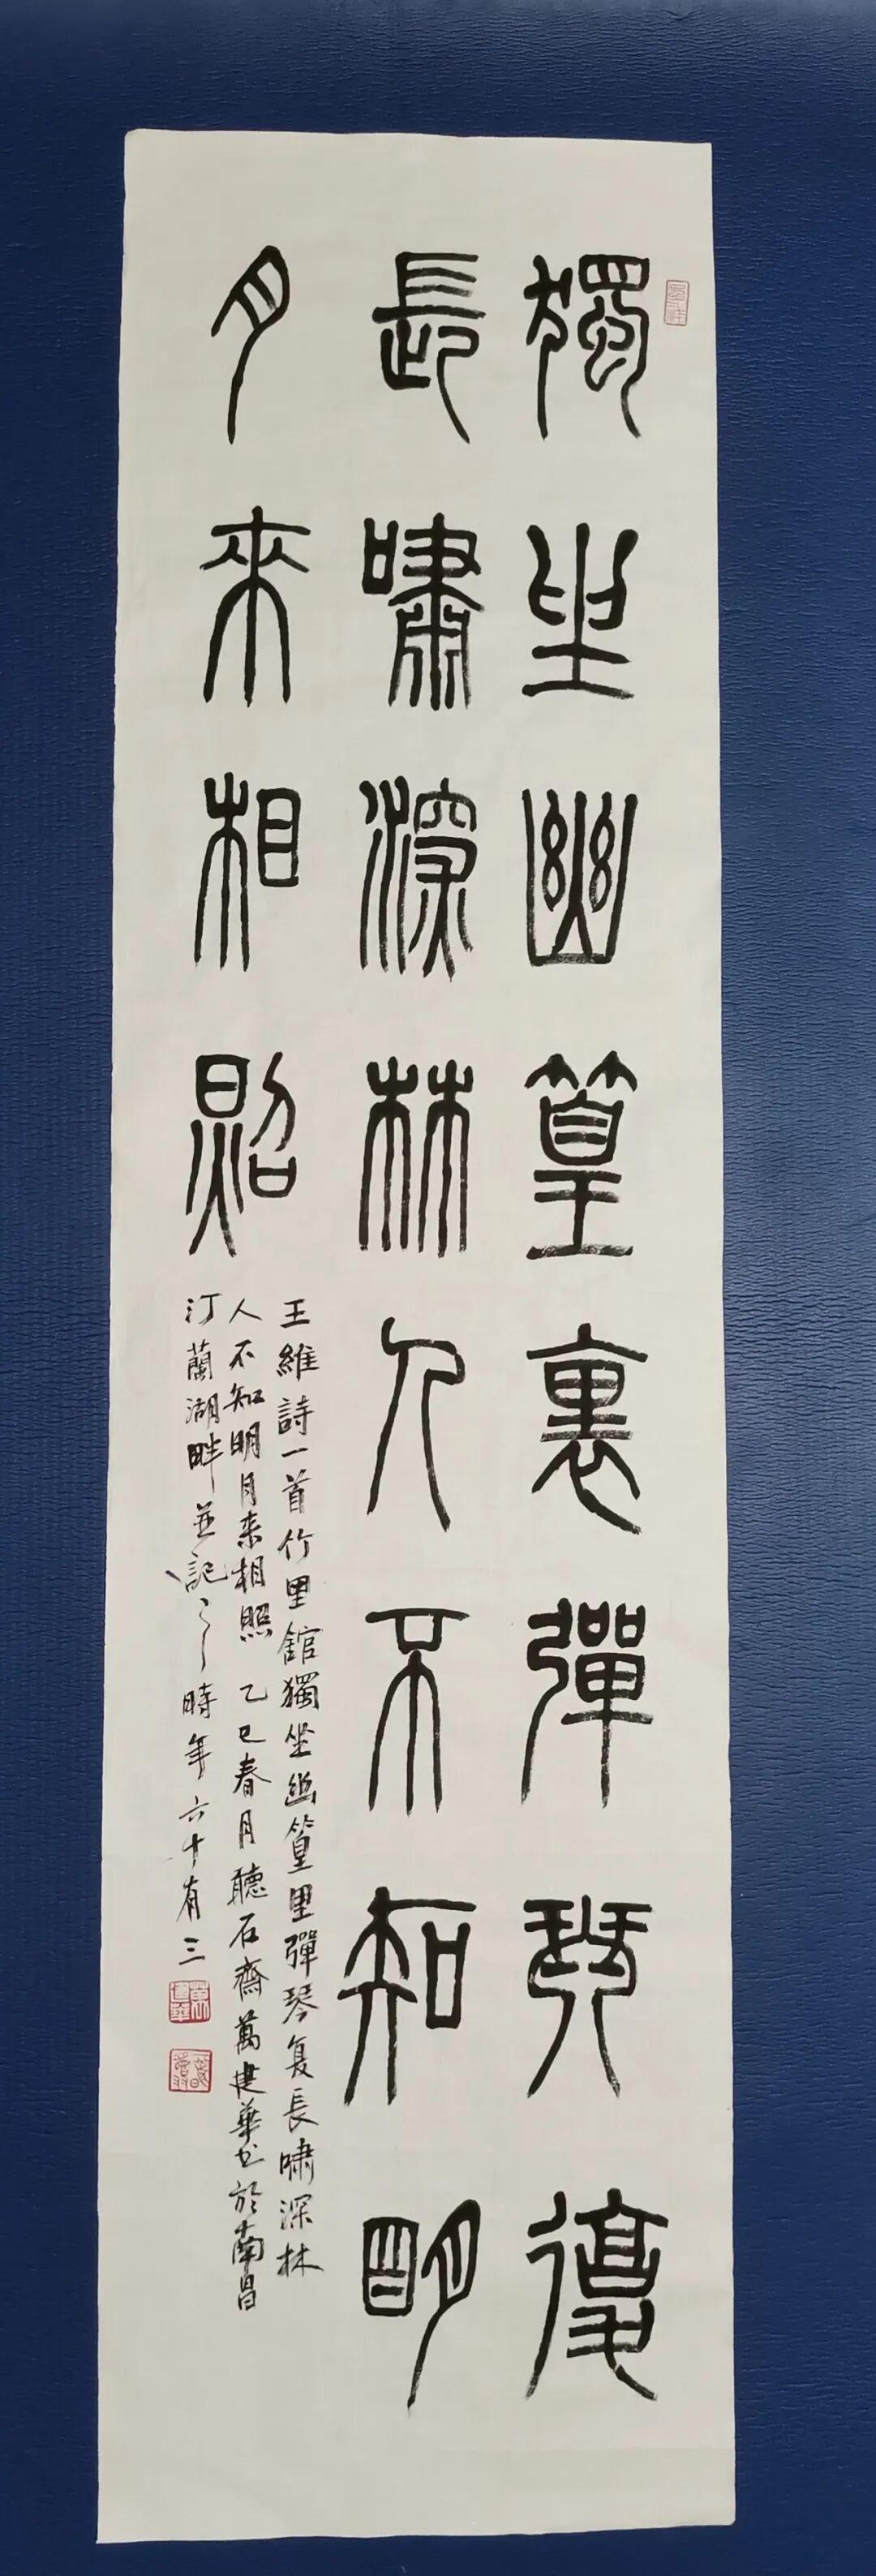 獨坐幽篁裏彈琴復
長嘯深林人不知明
月來相照
王維詩一首竹里館獨坐幽篁里彈琴复長嘯深林
人不知明月来相照 乙巳春月聽石齋萬建華书於南昌
汀蘭湖畔並記之時年六十有三
萬建華